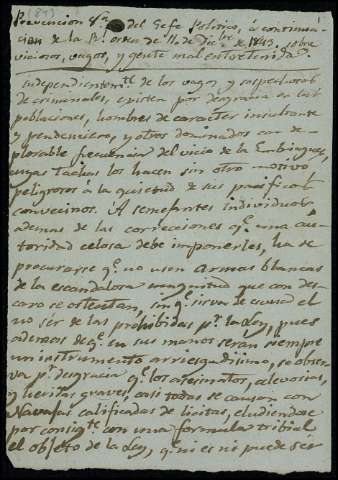 (81)
1
Prevencion 8ª del Gefe Politico, á continua-
cion de la Rˡ orden de 11 de Dicbre de 1843, sobre
viciosos, vagos, y gente mal entretenida.
Independientemte de los vagos y sospechosos
de criminales, existen por desgracia en las
poblaciones, hombres de caracter insultante
y pendenciero, y otros dominados con de-
plorable frecuencia del vicio de la Embriaguez,
cuyas tachas los hacen sin otro motivo
peligrosos à la quietud de sus pacificos
convecinos. A semejantes individuos
ademas de las correcciones qe una au-
toridad celosa debe imponerles, ha de
procurarse qe no usen armas blancas
de la escandalosa magnitud que con des-
caro se ostentan, sin qe sirva de escusa el
no sér de las prohibidas pr la Ley, pues
ademas de qe en sus manos serán siempre
un instrumento arriesgadisimo, se obser-
va pr desgracia qe los asesinatos, alevosias,
y heridas graves, casi todas se causan con
Navajas calificadas de licitas, eludiendose
por consigte con una formula tribial
el objeto de la Ley, qe ni es ni puede sér